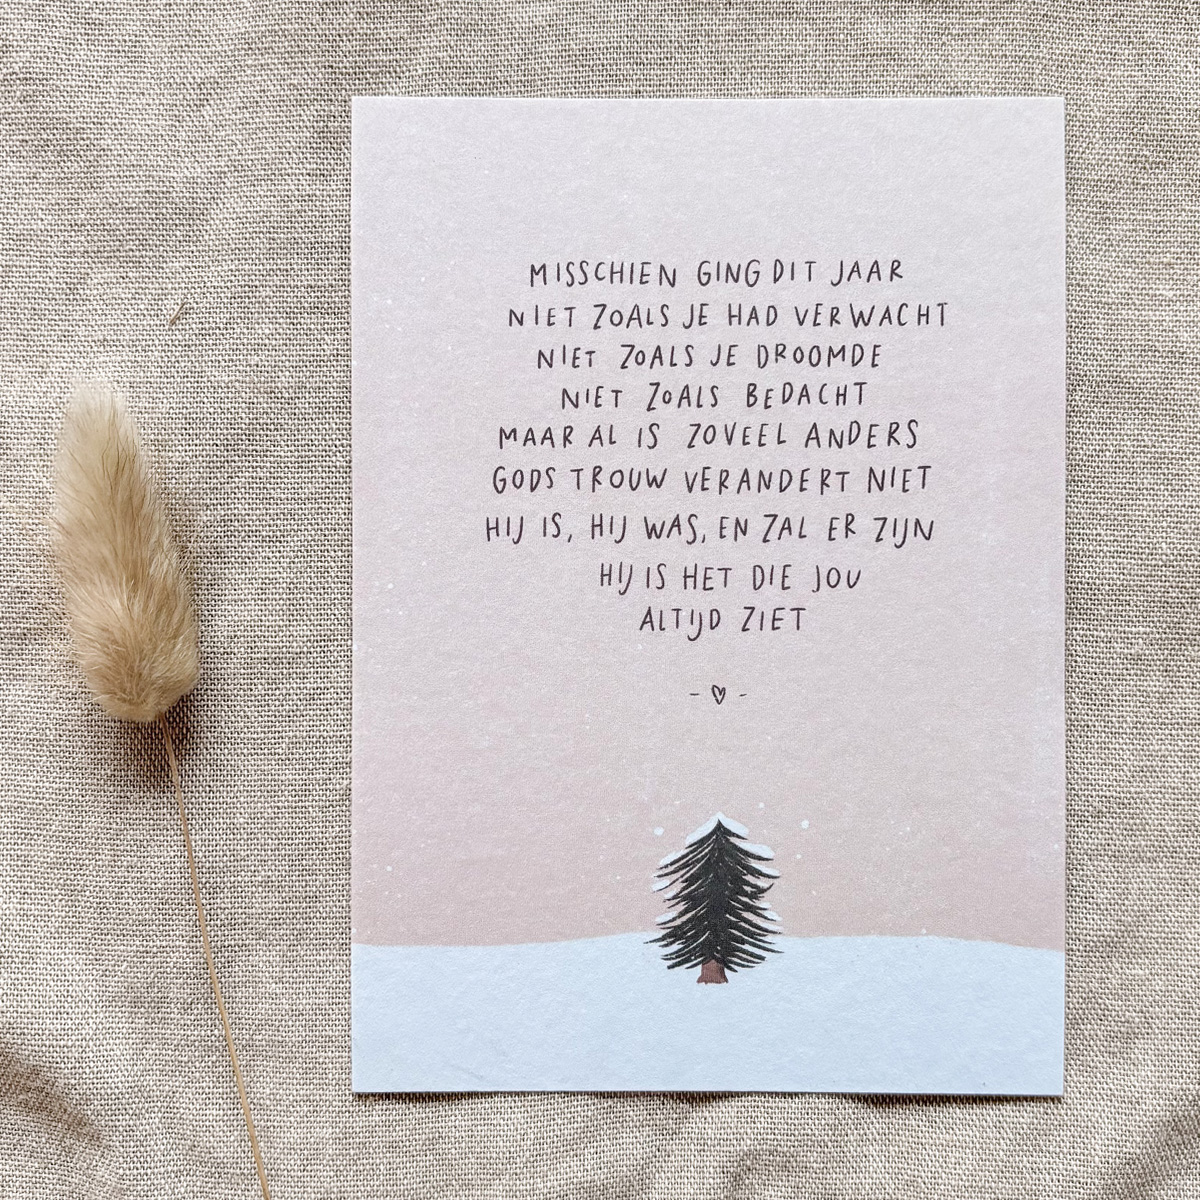 MISSCHIEN GING DIT JAAR
NIET ZOALS JE HAD VERWACHT
NIET ZOALS JE DROOMDE
NIET ZOALS BEDACHT
MAAR AL IS ZOVEEL ANDERS
GODS TROUW VERANDERT NIET
HIJ IS, HIJ WAS, EN ZAL ER ZIJN
HIJ IS HET DIE JOU
ALTIJD ZIET